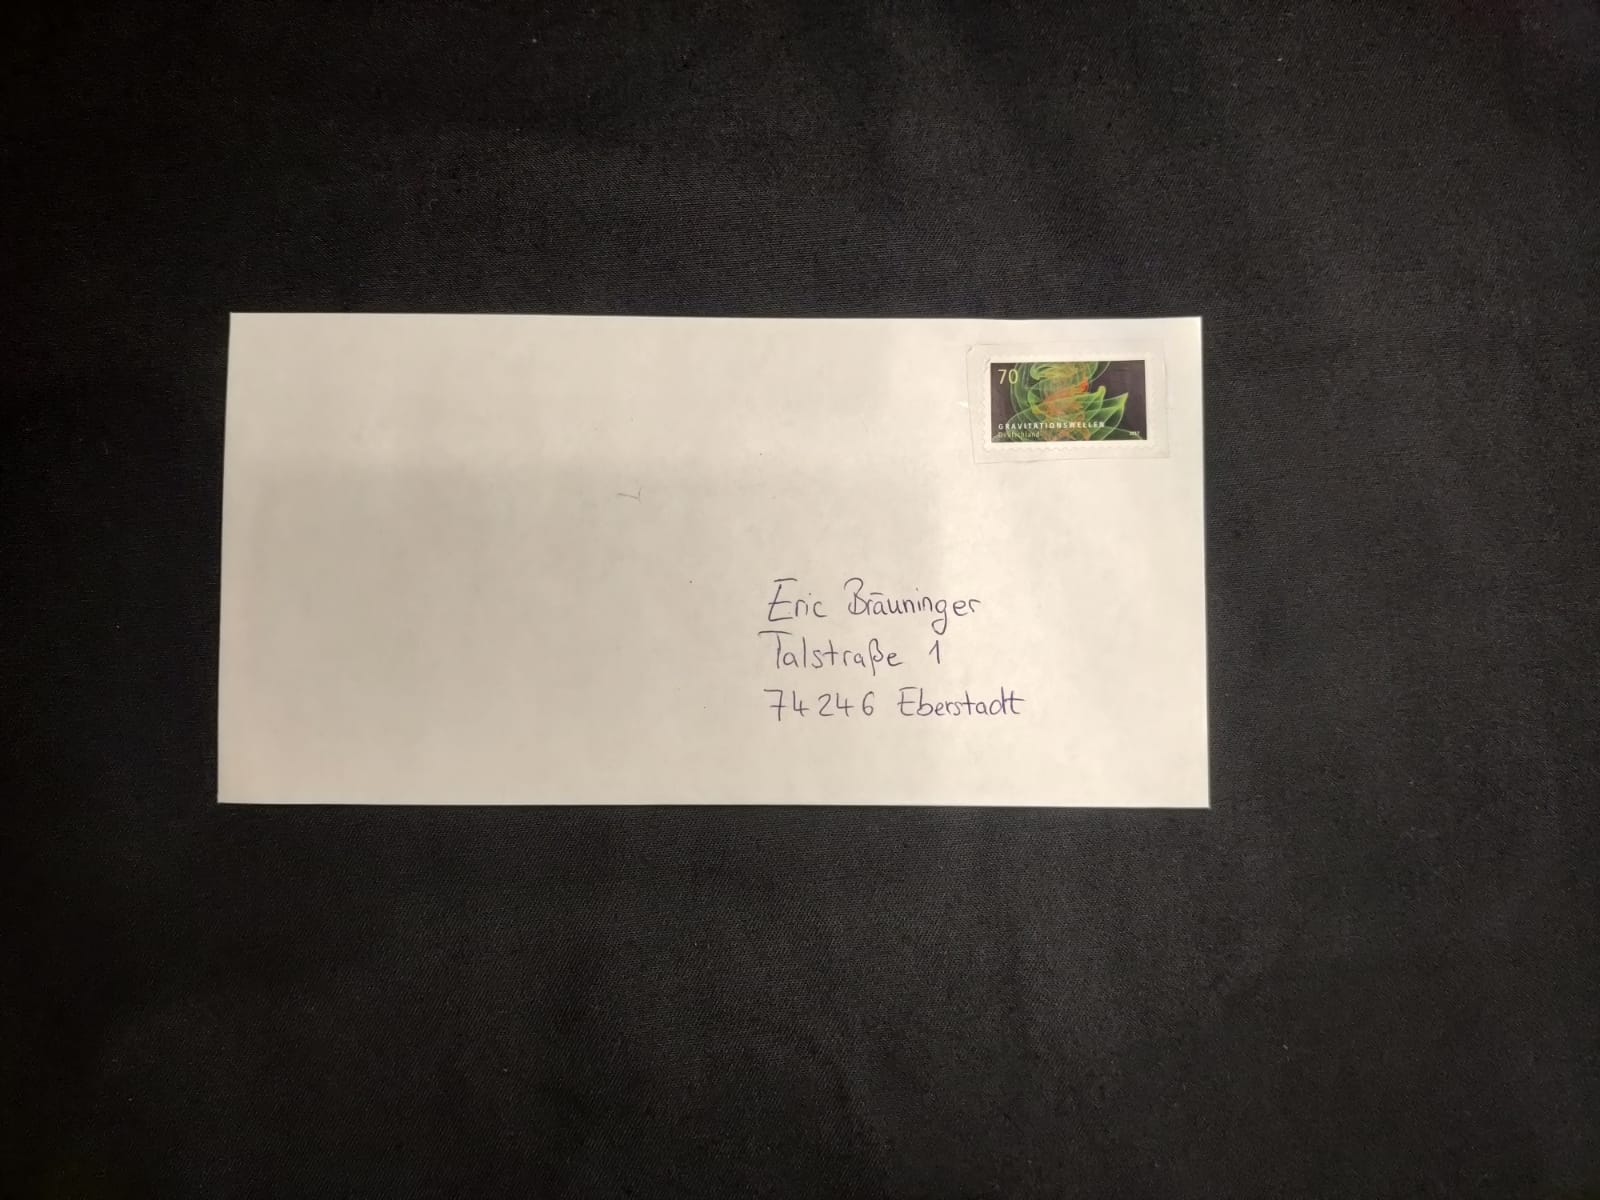 70
GRAVITATIONSWELLEN
Deutschland
2017
Eric Bräuninger
Talstraße 1
74246 Eberstadt